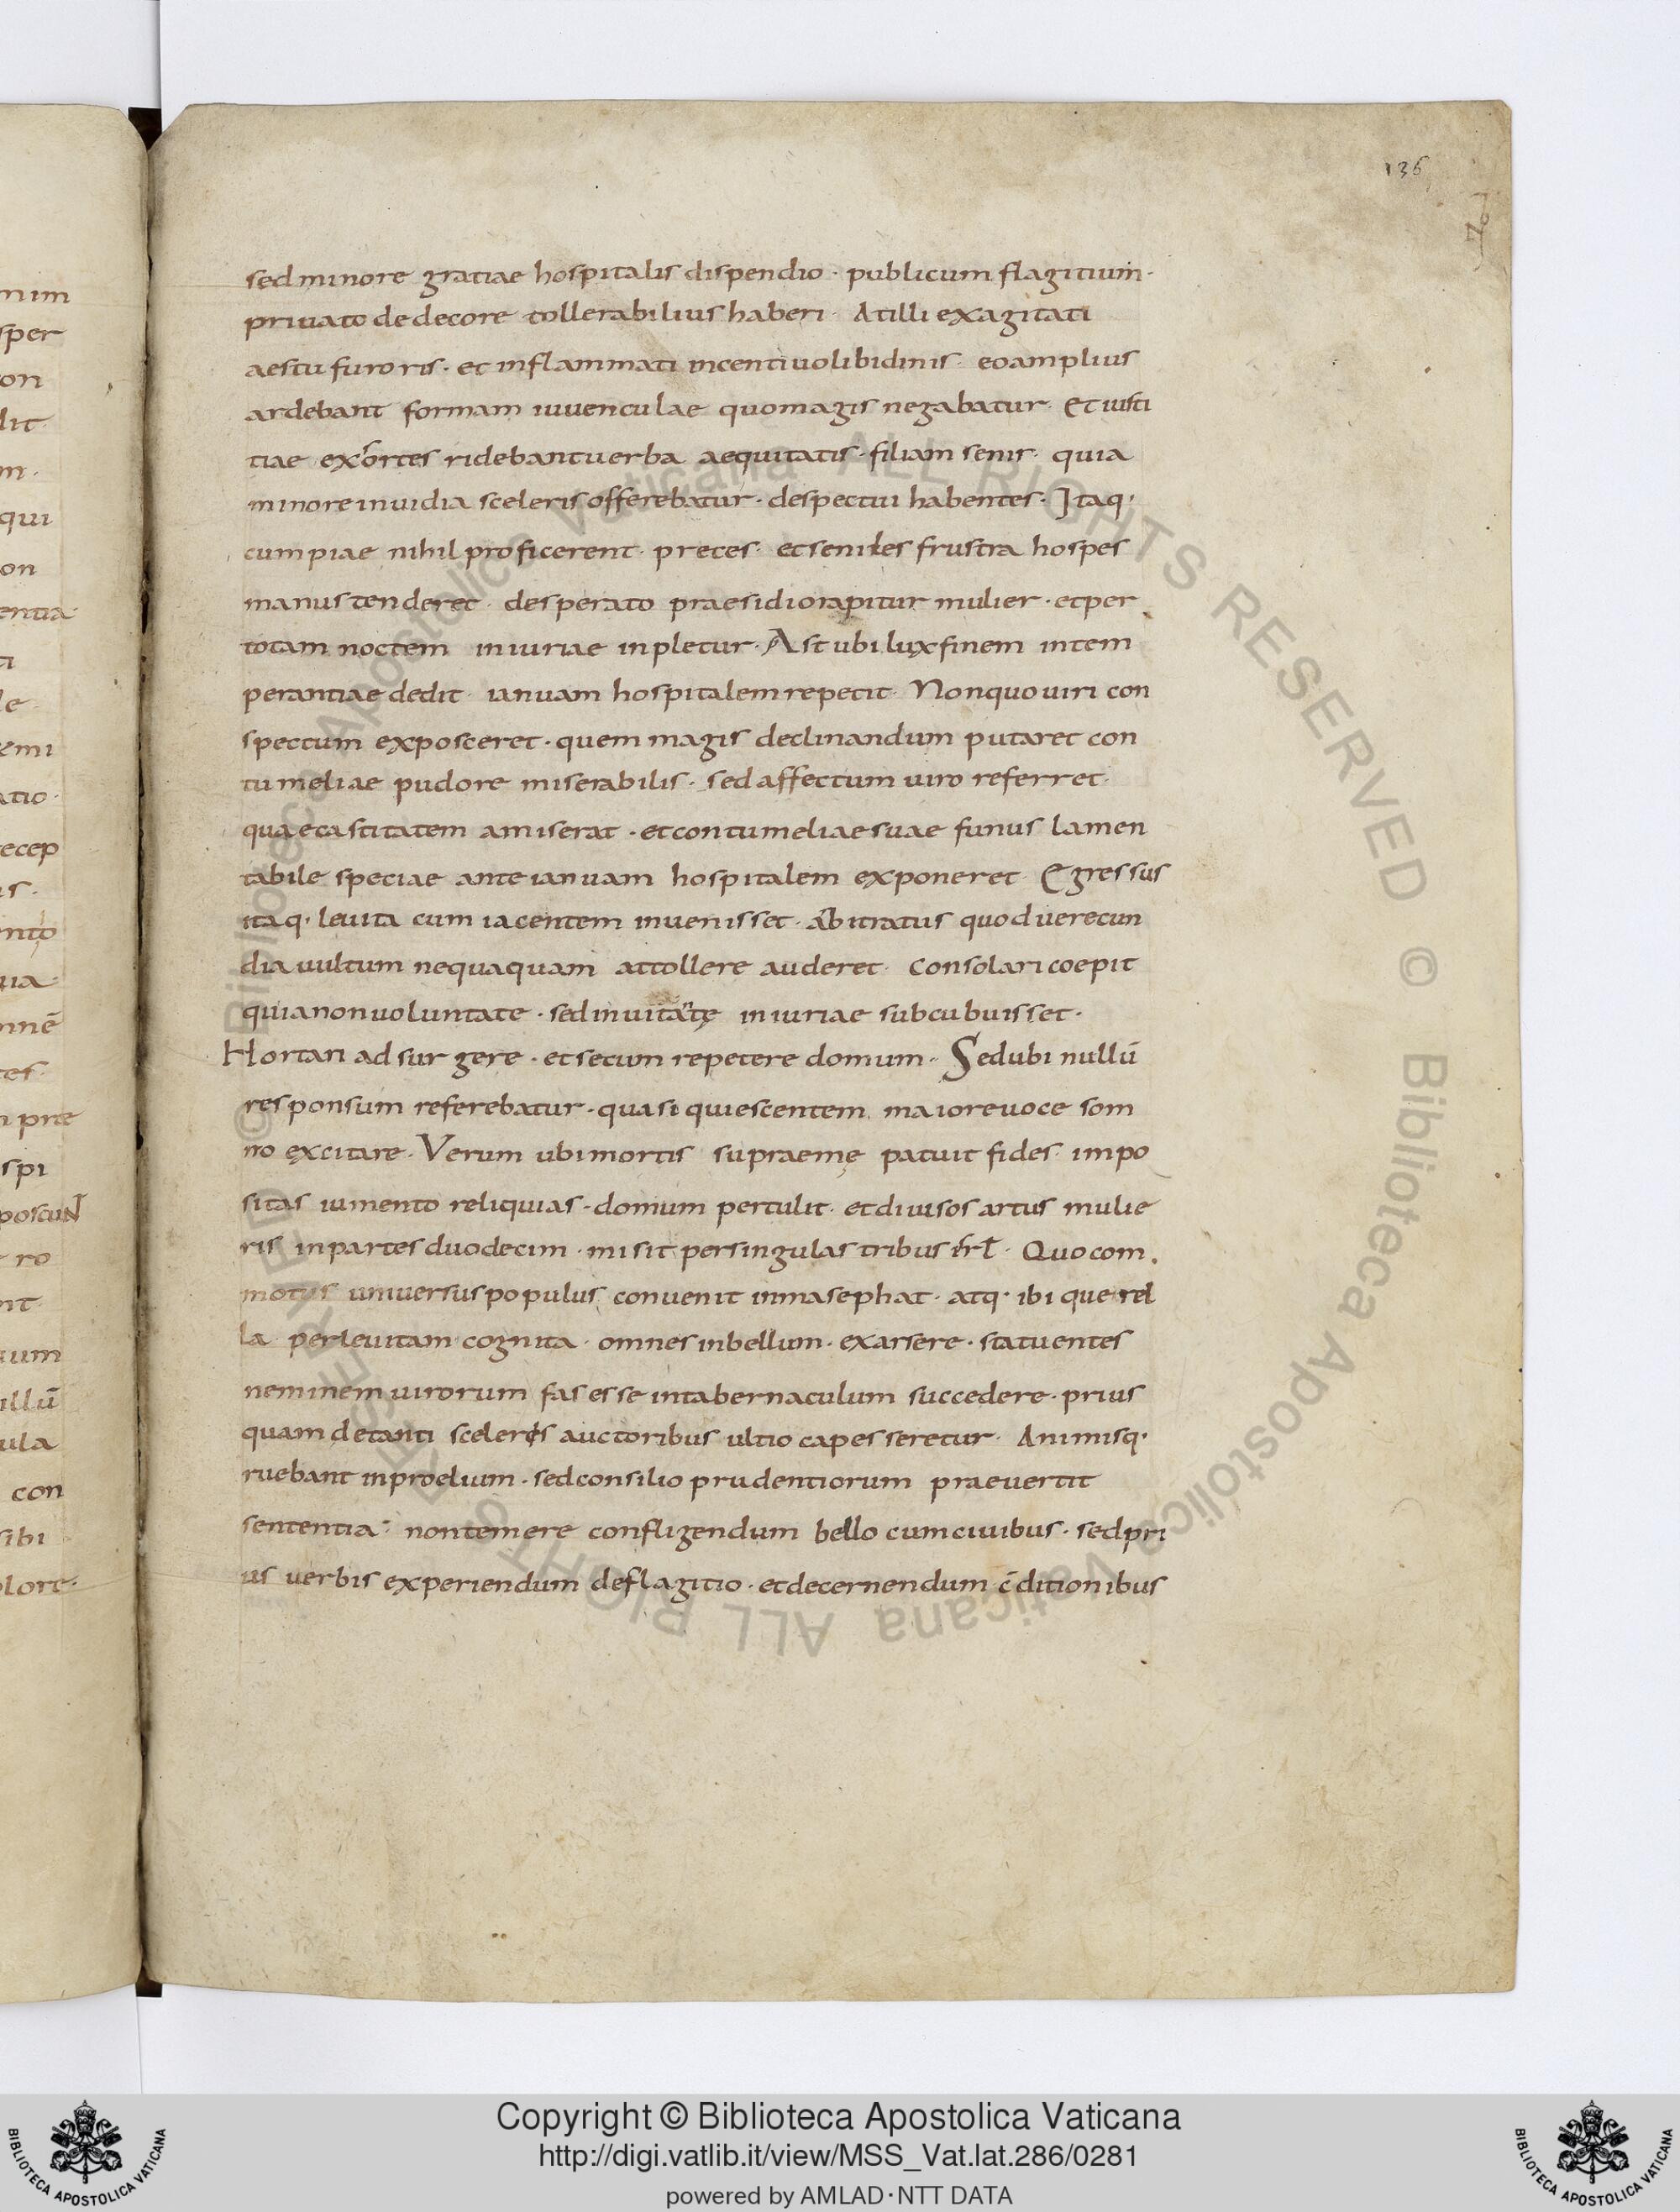 136
sed minore gratiae hospitalis dispendio · publicum flagitium ·
privato dedecore tollerabilius haberi · At illi exagitati
aestu furoris · et inflammati incentivo libidinis · eo amplius
ardebant formam iuvenculae quo magis negabatur · Et iusti
tiae exortes ridebant verba aequitatis · filiam senis · quia
minore invidia sceleris offerebatur · despectui habentes · Itaq·
cum piae nihil proficerent · preces · et seniles frustra hospes
manus tenderet · desperato praesidio rapitur mulier · et per
totam noctem iniuriae inpletur · Ast ubi lux finem intem
perantiae dedit · ianuam hospitalem repetit · Non quo viri con
spectum exposceret · quem magis declinandum putaret con
tumeliae pudore miserabilis · sed affectum viro referret ·
quae castitatem amiserat · et contumeliae suae funus lamen
tabile speciae ante ianuam hospitalem exponeret · Egressus
itaq· levita cum iacentem invenisset · Arbitratus quod verecun
dia vultum nequaquam attollere auderet · Consolari coepit
quia non voluntate · sed invita tę iniuriae subcubuisset ·
Hortari adsurgere · et secum repetere domum · Sed ubi nullū
responsum referebatur · quasi quiescentem maiore voce som
no excitare · Verum ubi mortis supraemę patuit fides · impo
sitas iumento reliquias · domum pertulit · et divisos artus mulie
ris in partes duodecim · misit per singulas tribus isrl̄ · Quo com
motus universus populus convenit in masephat · atq· ibi querel
la per levitam cognita · omnes in bellum · exarsere · statuentes
neminem virorum fas esse in tabernaculum succedere · prius
quam de tanti sceleris auctoribus ultio capesseretur · Animisq·
ruebant in proelium · sed consilio prudentiorum praevertit
sententia · non temere confligendum bello cum civibus · sed pri
us verbis experiendum de flagitio · et decernendum c̄ditionibus
© Biblioteca Apostolica Vaticana ALL RIGHTS RESERVED © Biblioteca Apostolica Vaticana ALL RIGHTS RESERVED
Copyright © Biblioteca Apostolica Vaticana
http://digi.vatlib.it/view/MSS_Vat.lat.286/0281
powered by AMLAD·NTT DATA
BIBLIOTECA APOSTOLICA VATICANA
BIBLIOTECA APOSTOLICA VATICANA